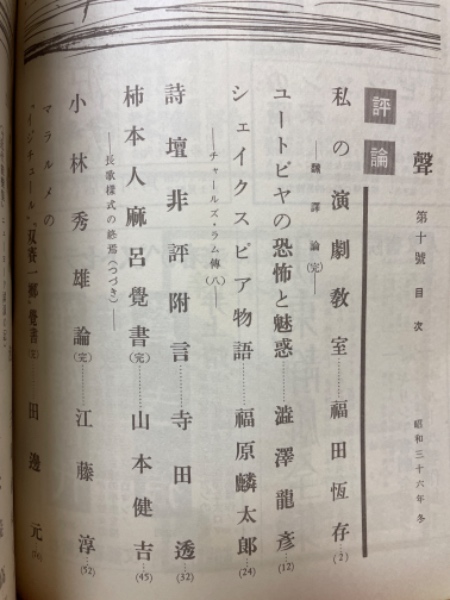 聲 第十號 目次 昭和三十六年冬
評論
私の演劇教室…………福田恆存…(2)
——飜譯論(完)——
ユートピヤの恐怖と魅惑……澁澤龍彥…(12)
シェイクスピア物語…………福原麟太郎…(24)
——チャールズ・ラム傳(八)——
詩壇非評附言…………寺田透…(32)
柿本人麻呂覺書(完)…………山本健吉…(45)
——長歌樣式の終焉(つづき)——
小林秀雄論(完)…………江藤淳…(52)
マラルメの
"イジチュール""双賽一擲"覺書(完)……田邊元